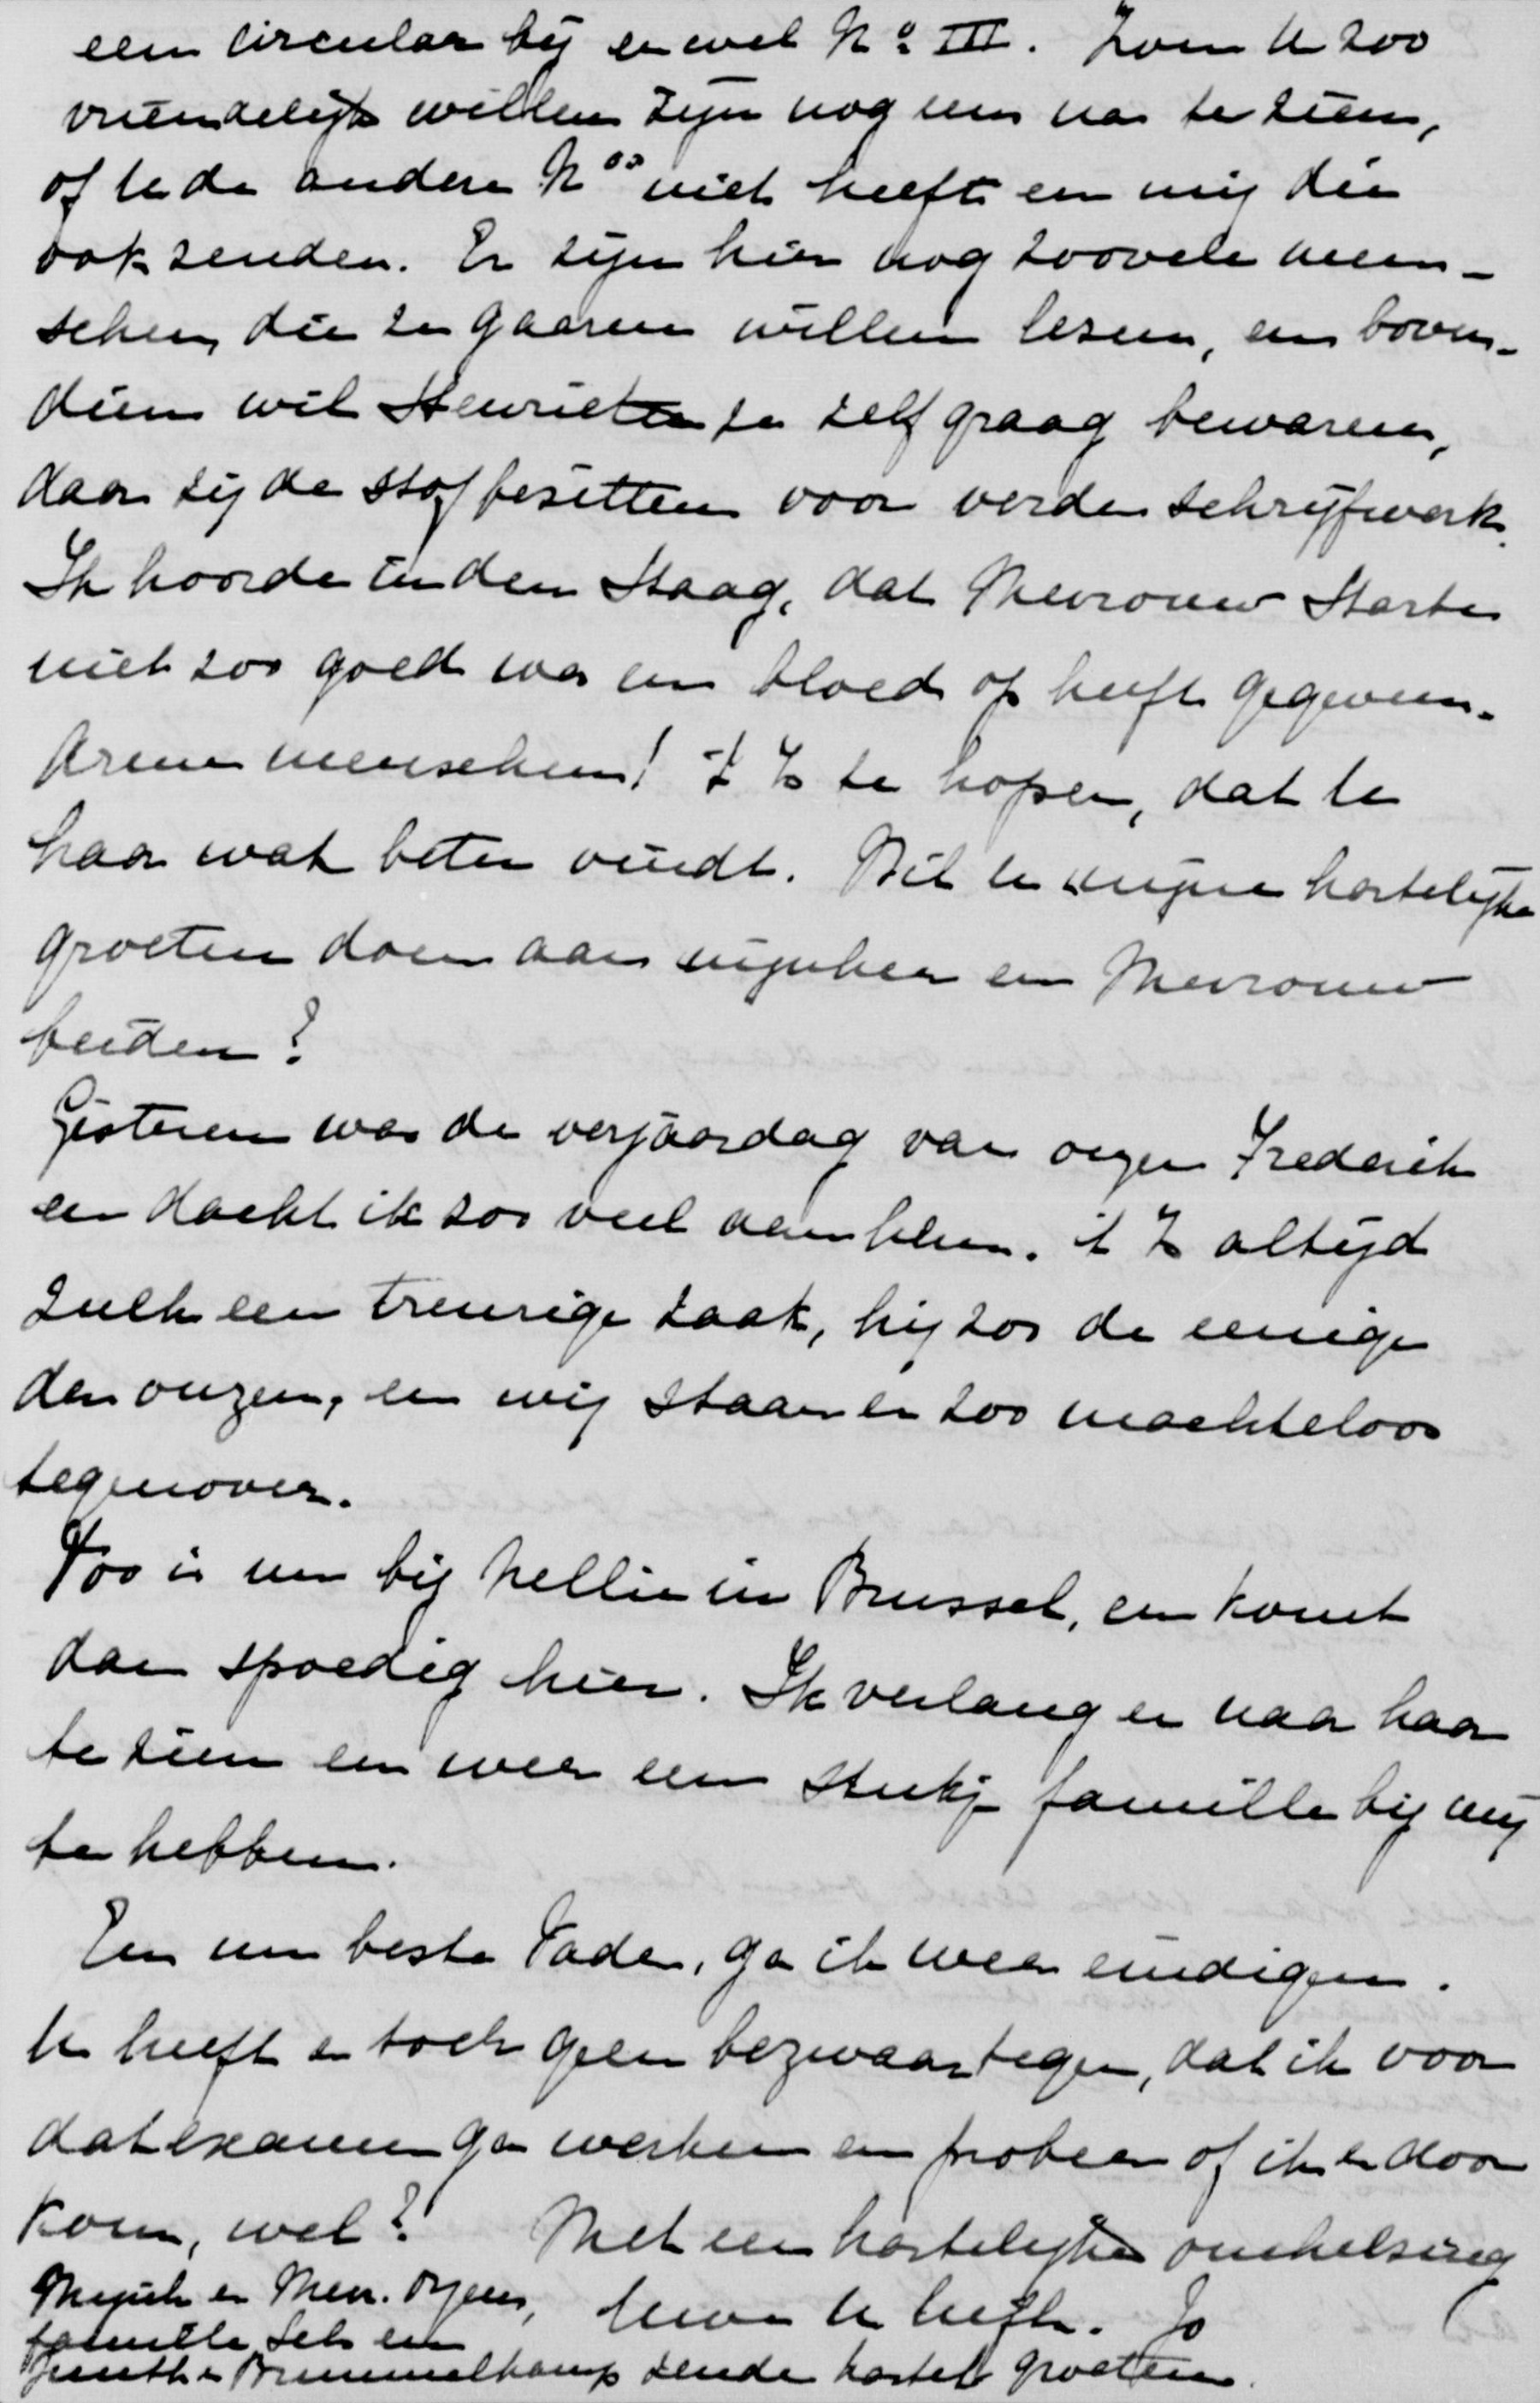 een circulair bij en wel No III. Zou U zoo
vriendelijk willen zijn nog eens na te zien,
of U de andere Nos niet heeft en mij die
ook zenden. Er zijn hier nog zoovele men-
schen, die ze gaarne willen lezen, en boven-
dien wil Henriette ze zelf graag bewaren,
daar zij de stof bezitten voor verder schrijfwerk.
Ik hoorde in den Haag, dat Mevrouw Harte
niet zoo goed was en bloed op heeft gegeven.
Arme menschen! 't Is te hopen, dat U
haar wat beter vindt. Wil U mijne hartelijke
groeten doen aan mijnheer en Mevrouw
beiden?
Gisteren was de verjaardag van onzen Frederik
en dacht ik zoo veel aan hem. 't Is altijd
zulk een treurige zaak, hij zoo de eenige
der onzen, en wij staan er zoo machteloos
tegenover.
Too is nu bij Nellie in Brussel, en komt
dan spoedig hier. Ik verlang er naar haar
te zien en weer een stukje famille bij mij
te hebben.
En nu beste Vader, ga ik weer eindigen.
U heeft er toch geen bezwaar tegen, dat ik voor
dat examen ga werken en probeer of ik er door
kom, wel? Met een hartelijke omhelzing
en Mevr. Uwe U liefh. Jo
famille
Brummelkamp zenden hartel. groeten.